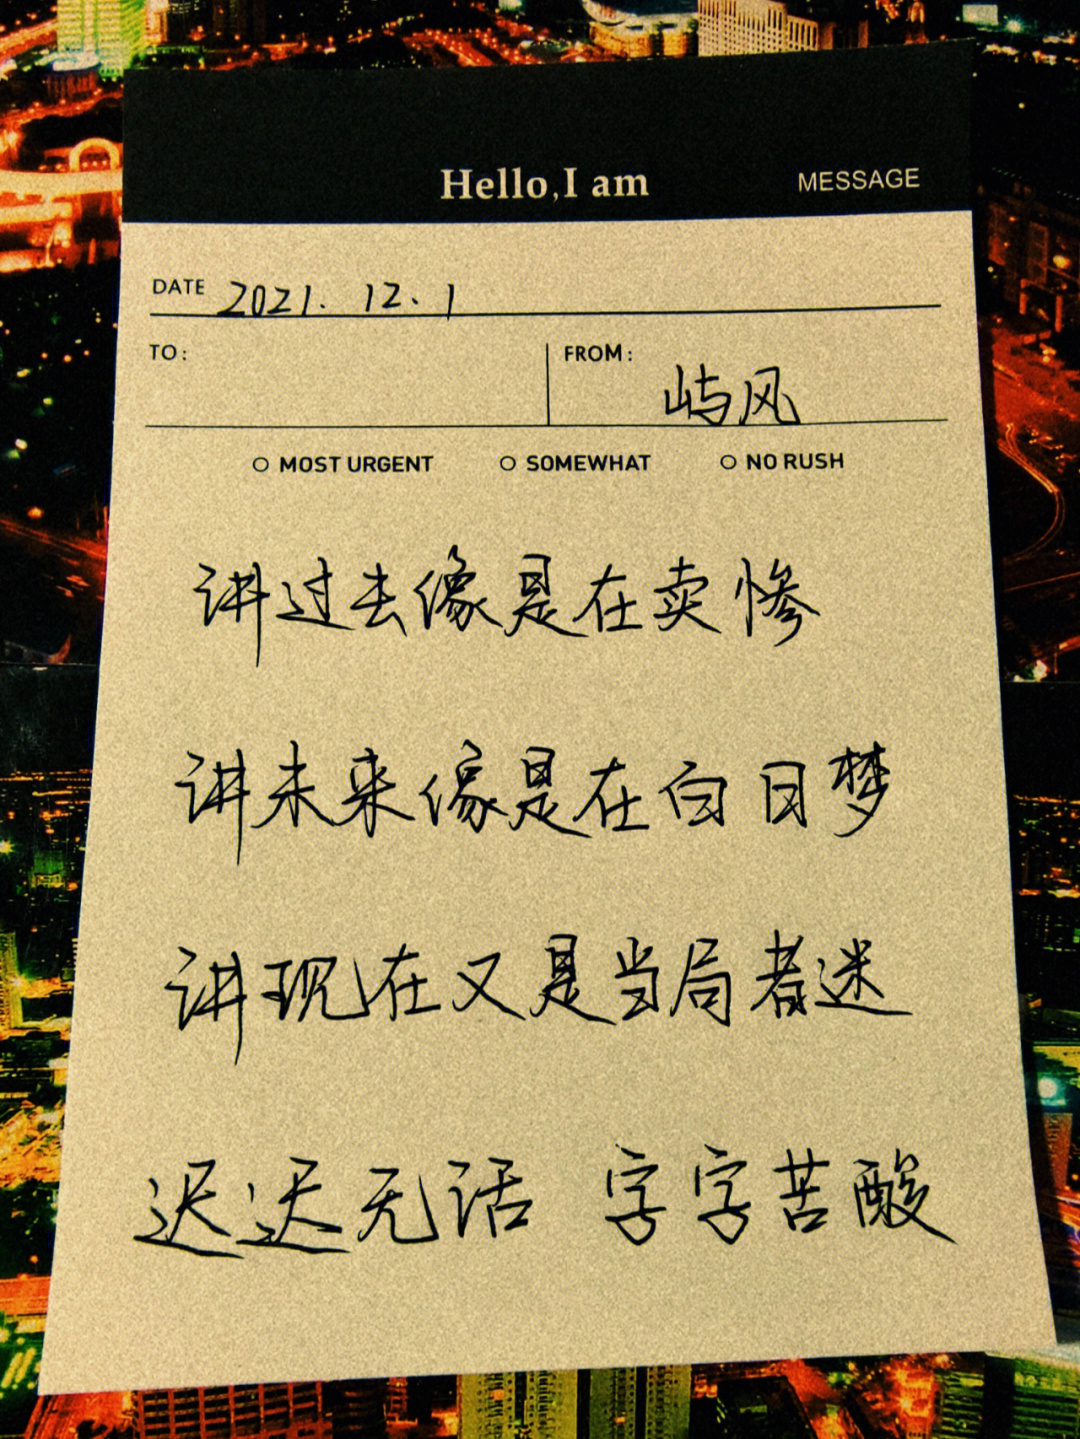 Hello,I am MESSAGE
DATE 2021. 12. 1
TO: FROM: 屿风
MOST URGENT SOMEWHAT NO RUSH
讲过去像是在卖惨
讲未来像是在白日梦
讲现在又是当局者迷
迟迟无话 字字苦酸